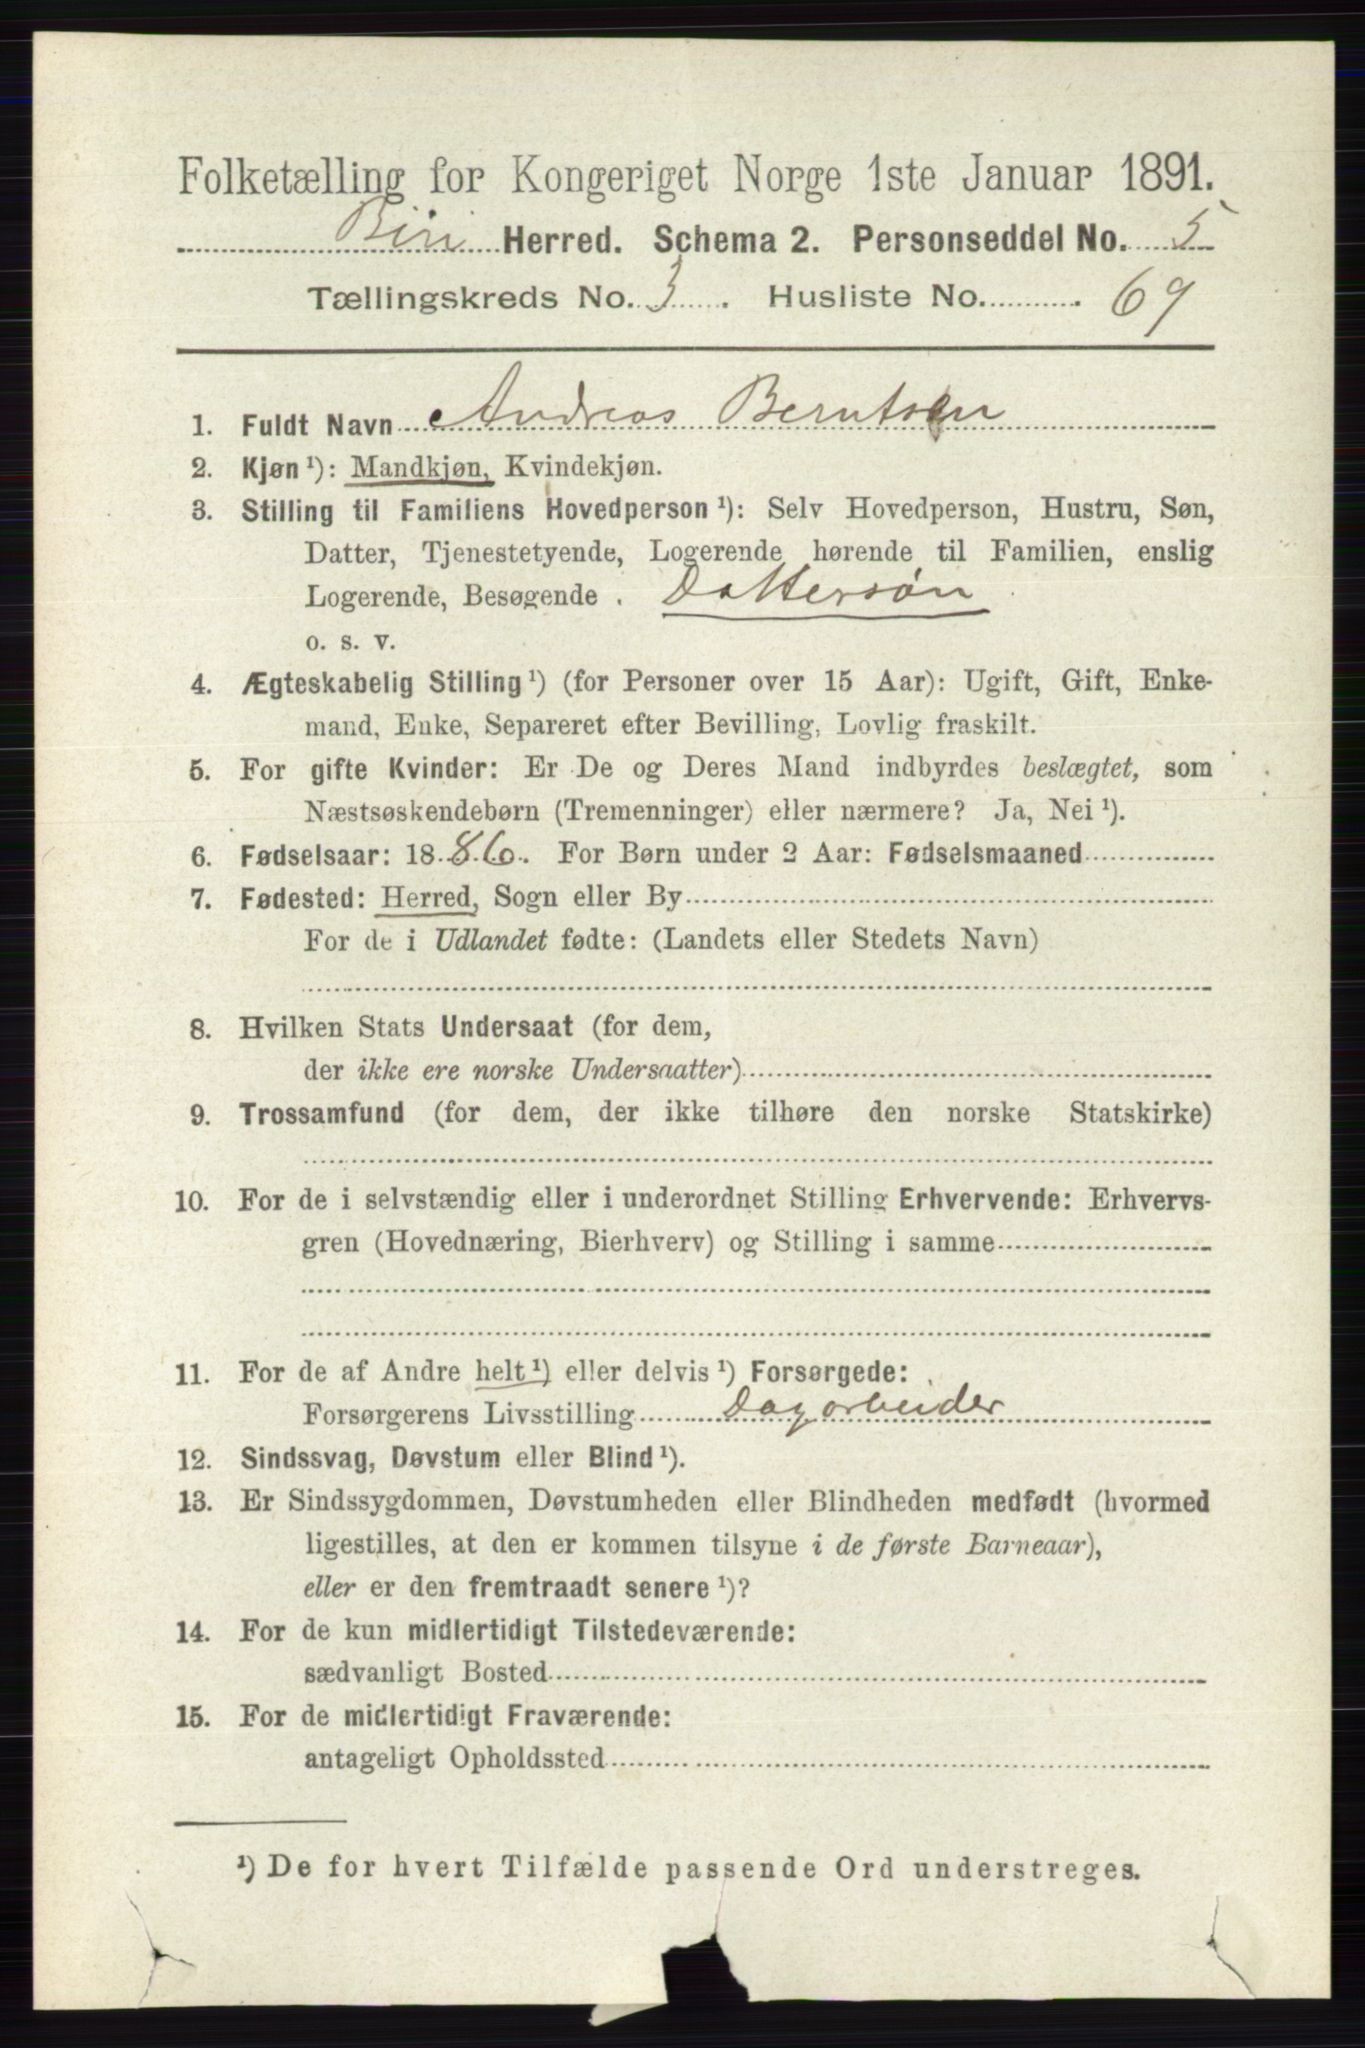 Folketælling for Kongeriget Norge 1ste Januar 1891.
Biri Herred. Schema 2. Personseddel No. 5
Tællingskreds No. 3. Husliste No. 69
1. Fuldt Navn Andreas Berntsen
2. Kjøn ¹): Mandkjøn, Kvindekjøn.
3. Stilling til Familiens Hovedperson ¹): Selv Hovedperson, Hustru, Søn,
Datter, Tjenestetyende, Logerende hørende til Familien, enslig
Logerende, Besøgende . Dattersøn
o. s. v.
4. Ægteskabelig Stilling ¹) (for Personer over 15 Aar): Ugift, Gift, Enke-
mand, Enke, Separeret efter Bevilling, Lovlig fraskilt.
5. For gifte Kvinder: Er De og Deres Mand indbyrdes beslægtet, som
Næstsøskendebørn (Tremenninger) eller nærmere? Ja, Nei ¹).
6. Fødselsaar: 1886. For Børn under 2 Aar: Fødselsmaaned
7. Fødested: Herred, Sogn eller By
For de i Udlandet fødte: (Landets eller Stedets Navn)
8. Hvilken Stats Undersaat (for dem,
der ikke ere norske Undersaatter)
9. Trossamfund (for dem, der ikke tilhøre den norske Statskirke)
10. For de i selvstændig eller i underordnet Stilling Erhvervende: Erhvervs-
gren (Hovednæring, Bierhverv) og Stilling i samme
11. For de af Andre helt ¹) eller delvis ¹) Forsørgede:
Forsørgerens Livsstilling Dagarbeider
12. Sindssvag, Døvstum eller Blind ¹).
13. Er Sindssygdommen, Døvstumheden eller Blindheden medfødt (hvormed
ligestilles, at den er kommen tilsyne i de første Barneaar),
eller er den fremtraadt senere ¹)?
14. For de kun midlertidigt Tilstedeværende:
sædvanligt Bosted
15. For de midlertidigt Fraværende:
antageligt Opholdssted
¹) De for hvert Tilfælde passende Ord understreges.